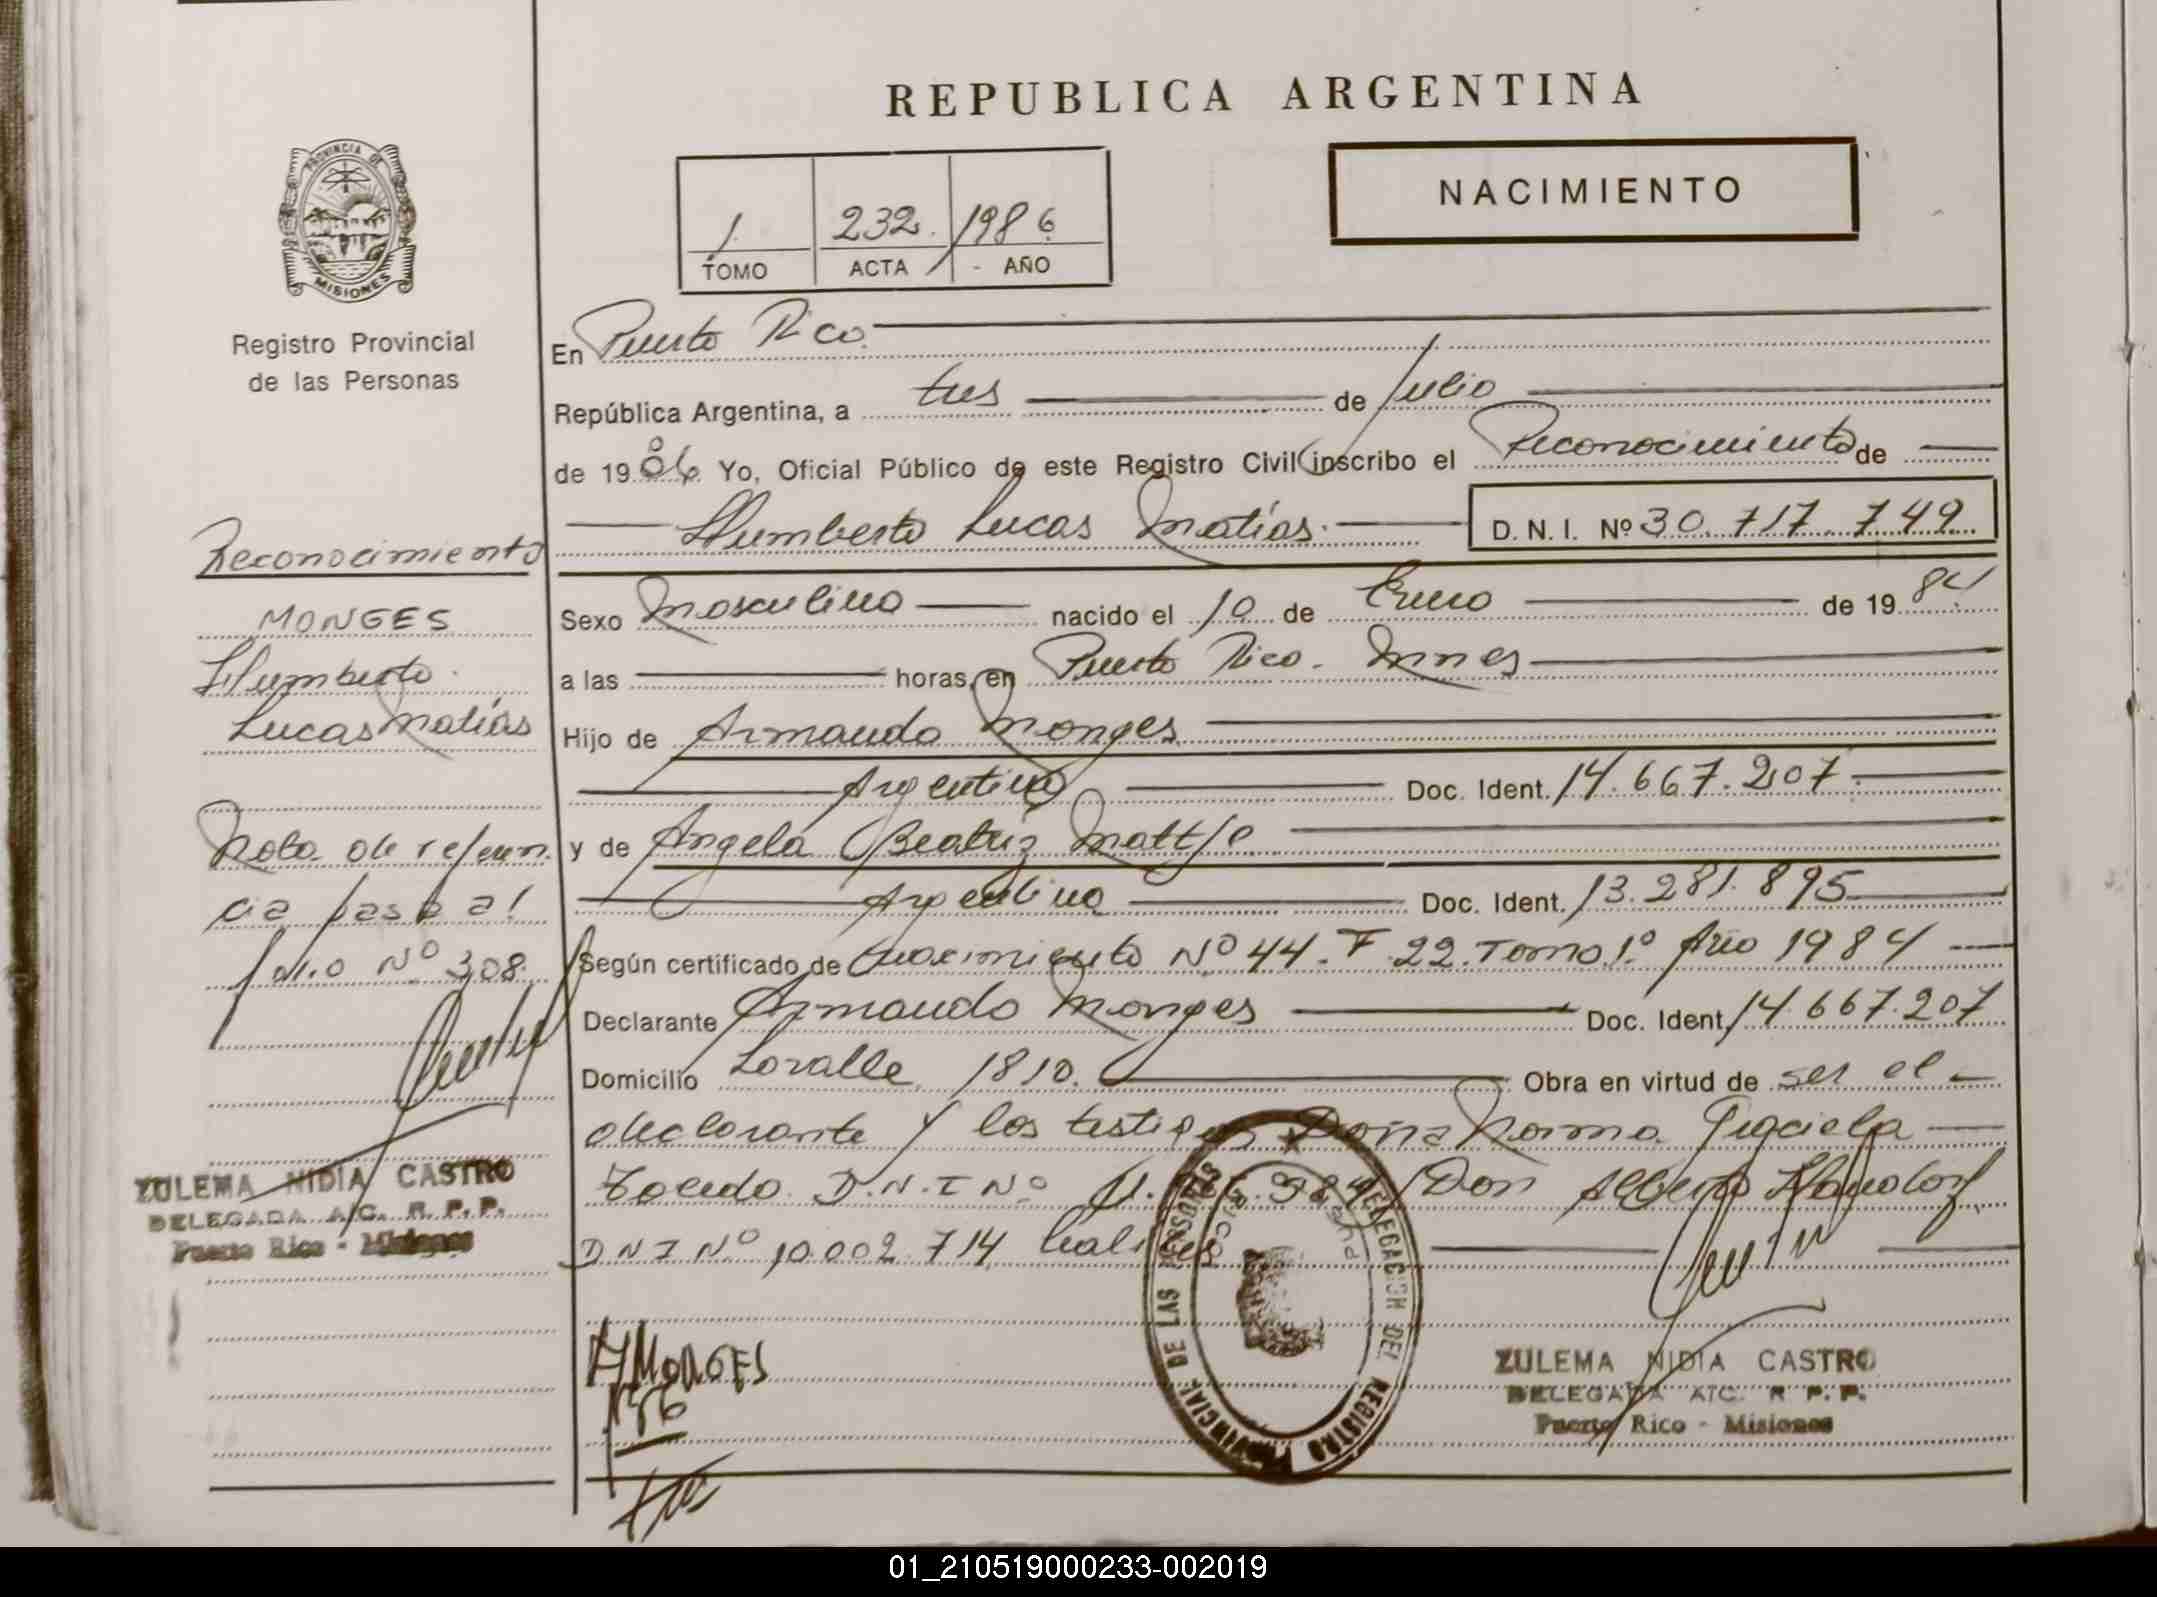 REPUBLICA ARGENTINA
PROVINCIA DE
MISIONES
Registro Provincial
de las Personas
NACIMIENTO
1 232 1986
TOMO ACTA AÑO
En Puerto Rico
República Argentina, a tres de Julio
de 1986 Yo, Oficial Público de este Registro Civil inscribo el Reconocimiento de
Humberto Lucas Matías D. N. I. Nº 30.717.749
Sexo Masculino nacido el 10 de Enero de 1984
a las horas, en Puerto Rico. Mnes
Hijo de Armando Monges
Argentino Doc. Ident. 14.667.207
y de Angela Beatriz Mattje
Argentina Doc. Ident. 13.281.895
Según certificado de Nacimiento Nº 44. F 22. Tomo 1º Año 1984
Declarante Armando Monges Doc. Ident. 14.667.207
Domicilio Lavalle 1810. Obra en virtud de ser el
declarante y los testigos Doña Norma Graciela
Toledo D.N.I Nº Don Alberto
D.N.I Nº 10.002.714
Reconocimiento
MONGES
Humberto
Lucas Matías
Nota de referen
cia pasa al
folio Nº 308
ZULEMA NIDIA CASTRO
DELEGADA A/C. R. P. P.
Puerto Rico - Misiones
A MONGES
DELEGACION DEL REGISTRO PROVINCIAL DE LAS PERSONAS
PUERTO RICO
ZULEMA NIDIA CASTRO
DELEGADA A/C. R. P. P.
Puerto Rico - Misiones
01_210519000233-002019